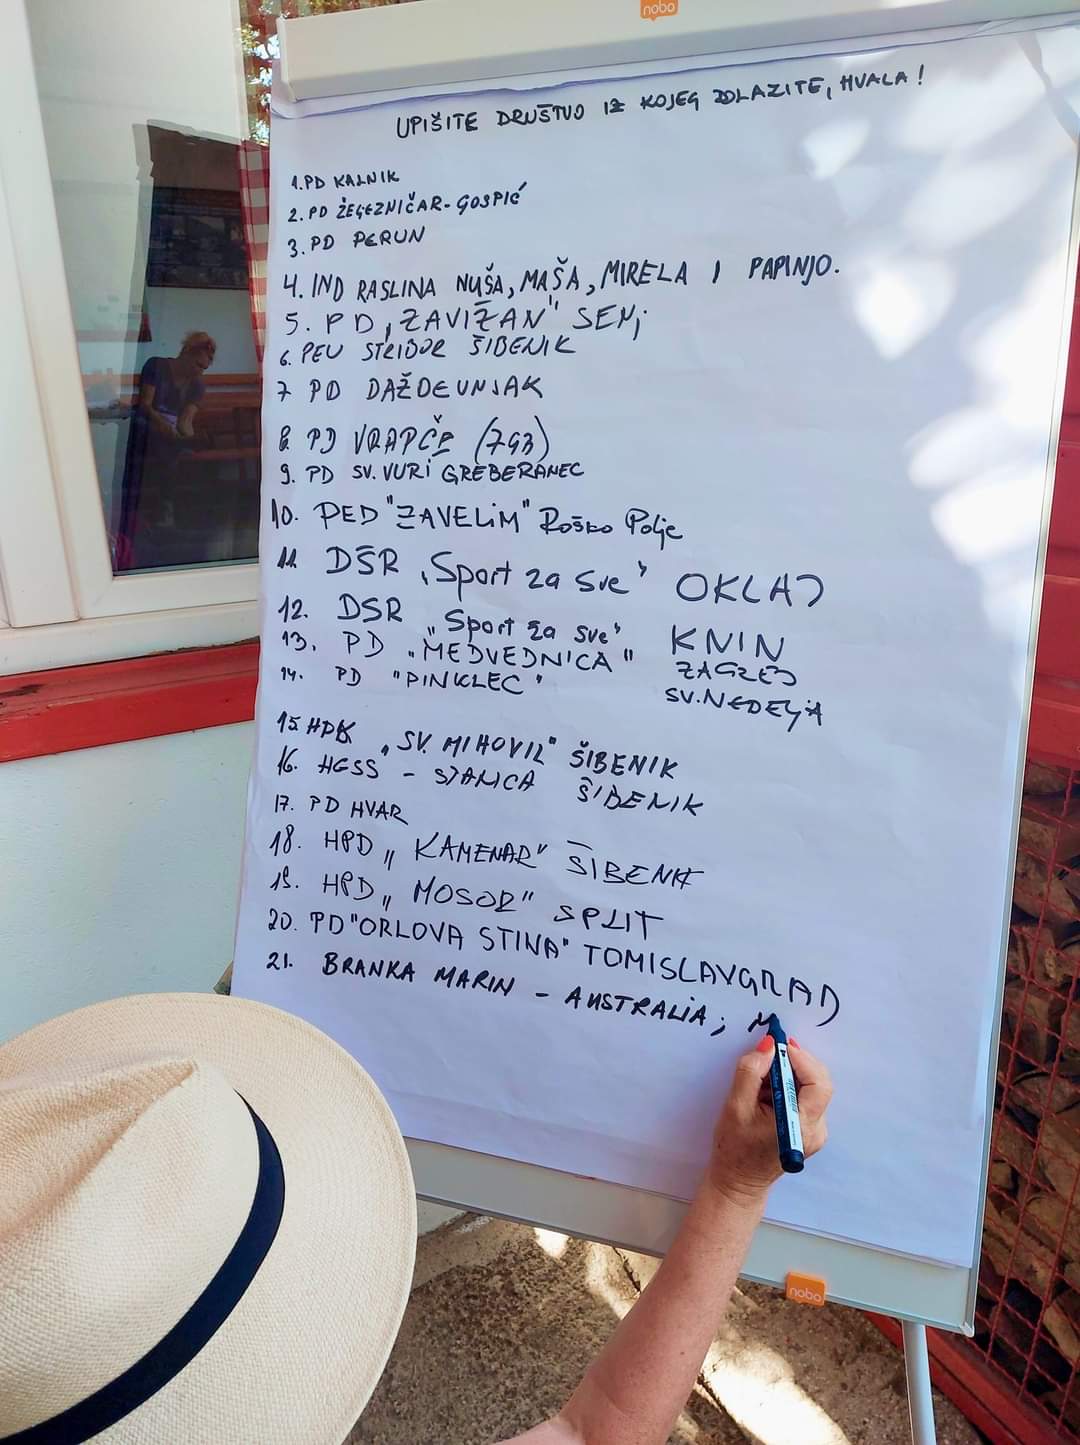 nobo
UPIŠITE DRUŠTVO IZ KOJEG DOLAZITE, HVALA!
1. PD KALNIK
2. PD ŽELEZNIČAR - GOSPIĆ
3. PD PERUN
4. IND RASLINA NUŠA, MAŠA, MIRELA I PAPINJO.
5. PD „ZAVIŽAN" SENJ
6. PEU STRIBOR ŠIBENIK
7 PD DAŽDEVNJAK
8. PD VRAPČE (793)
9. PD SV. VURI GREBERANEC
10. PED "ZAVELIM" Roško Polje
11. DŠR „Sport za sve" OKLAJ
12. DSR „Sport za sve" KNIN
13. PD „MEDVEDNICA" ZAGREB
14. PD "PINKLEC" SV. NEDELJA
15. HPK „SV. MIHOVIL" ŠIBENIK
16. HGSS - STANICA ŠIBENIK
17. PD HVAR
18. HPD „KAMENAR" ŠIBENIK
19. HPD „MOSOR" SPLIT
20. PD "ORLOVA STINA" TOMISLAVGRAD
21. BRANKA MARIN - AUSTRALIA;
nobo